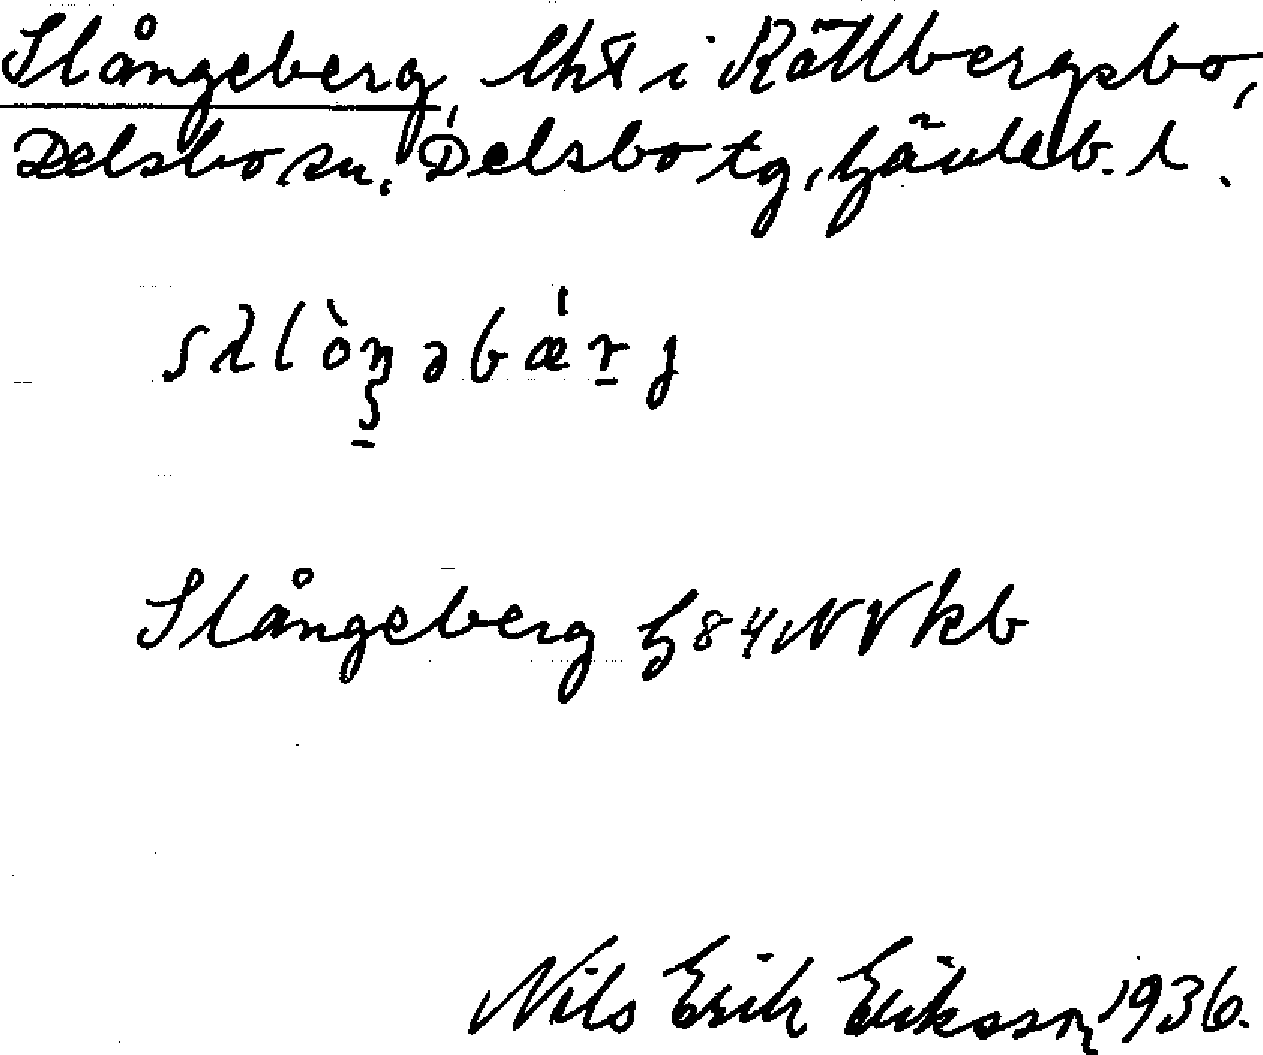 Slångeberg, lht i Källbergsbo,
Delsbo sn. Delsbo tg, Gävleb. l.
Slångeberg G84NVkb
Nils Erik Eriksson 1936.